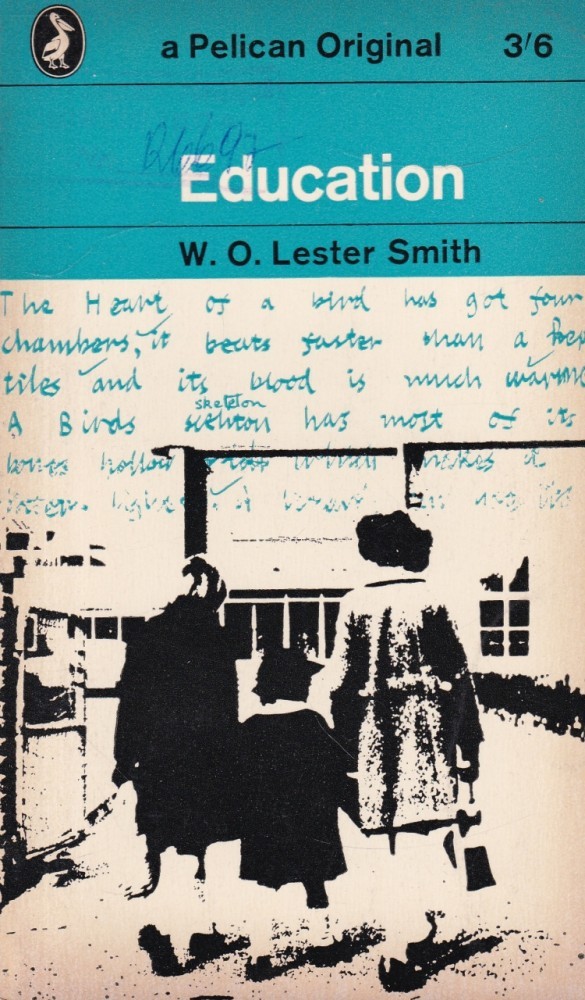 a Pelican Original 3/6
Education
W. O. Lester Smith
The Heart of a bird has got four
chambers, it beats faster than a Rep
tiles and its blood is much warm
skeleton
A Birds has most of its
bones hollow which makes it